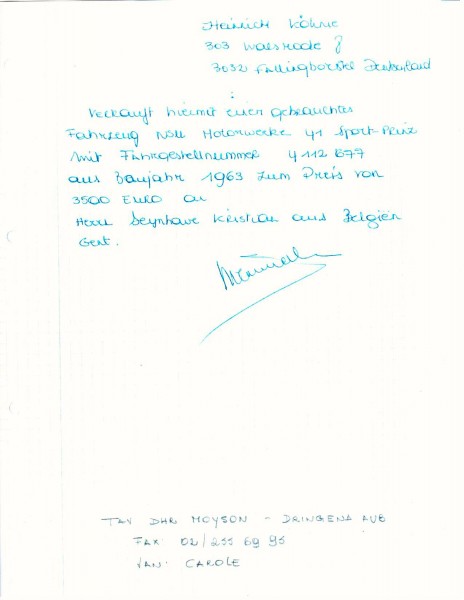 Heinrich Köhne
303 Walsrode 8
3032 Fallingbostel Deutschland
:
Verkauft hiermit einen gebrauchtes
Fahrzeug NSU Motorwerke 41 Sport-Prinz
mit Fahrgestellnummer 4112 677
aus Baujahr 1963 zum Preis von
3500 EURO an
Herr Deynhave Kristian aus Belgien
Gent.
TAV DHR MOYSON - DRINGEND AUB
FAX: 02/255 69 95
VAN: CAROLE